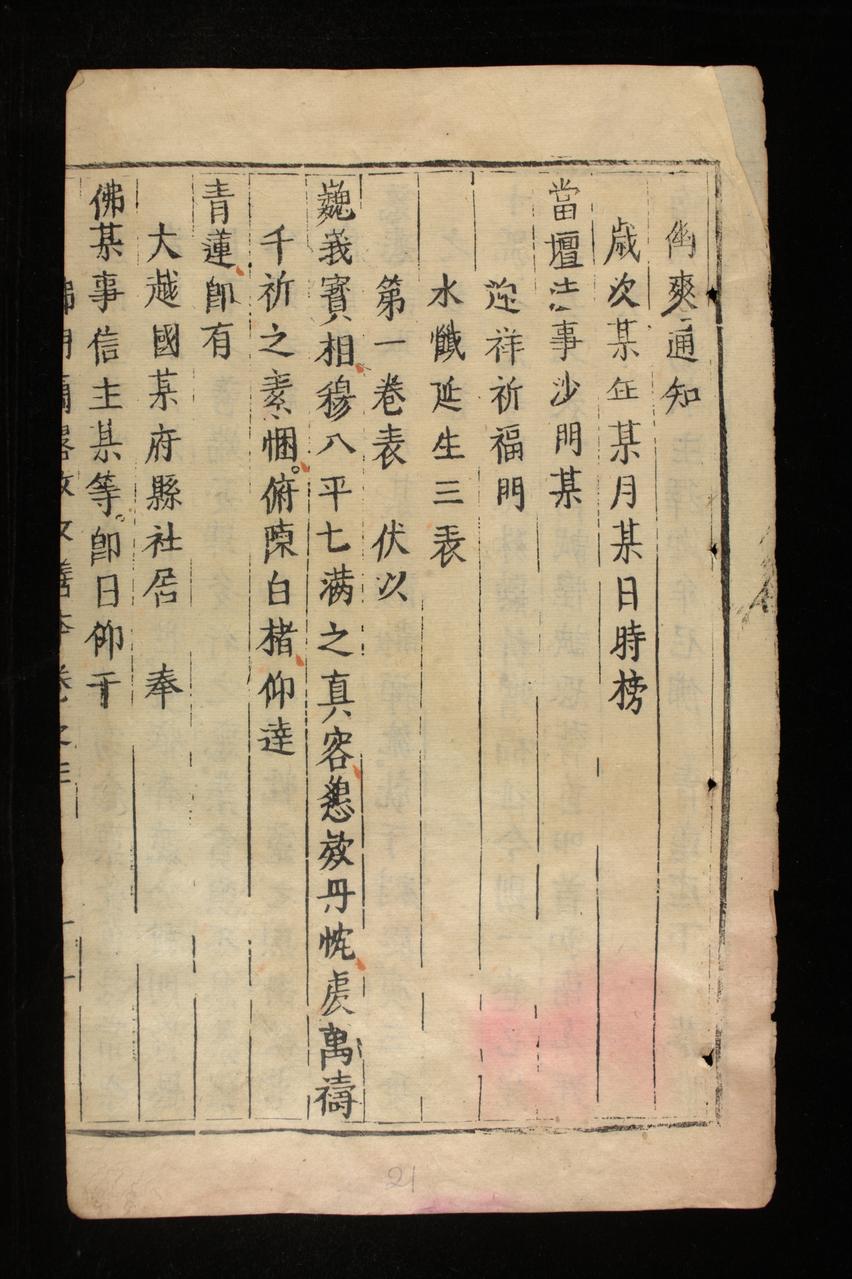 幽爽通知
歲次某年某月某日時榜
當壇法事沙門某
迎祥祈福門
水懺延生三表
第一卷表　伏以
巍義寶相穆八平七满之真容慇效丹忱虔萬禱
千祈之素悃俯陳白楮仰達
青蓮卽有
大越國某府縣社居　奉
佛某事信主某等卽日仰干